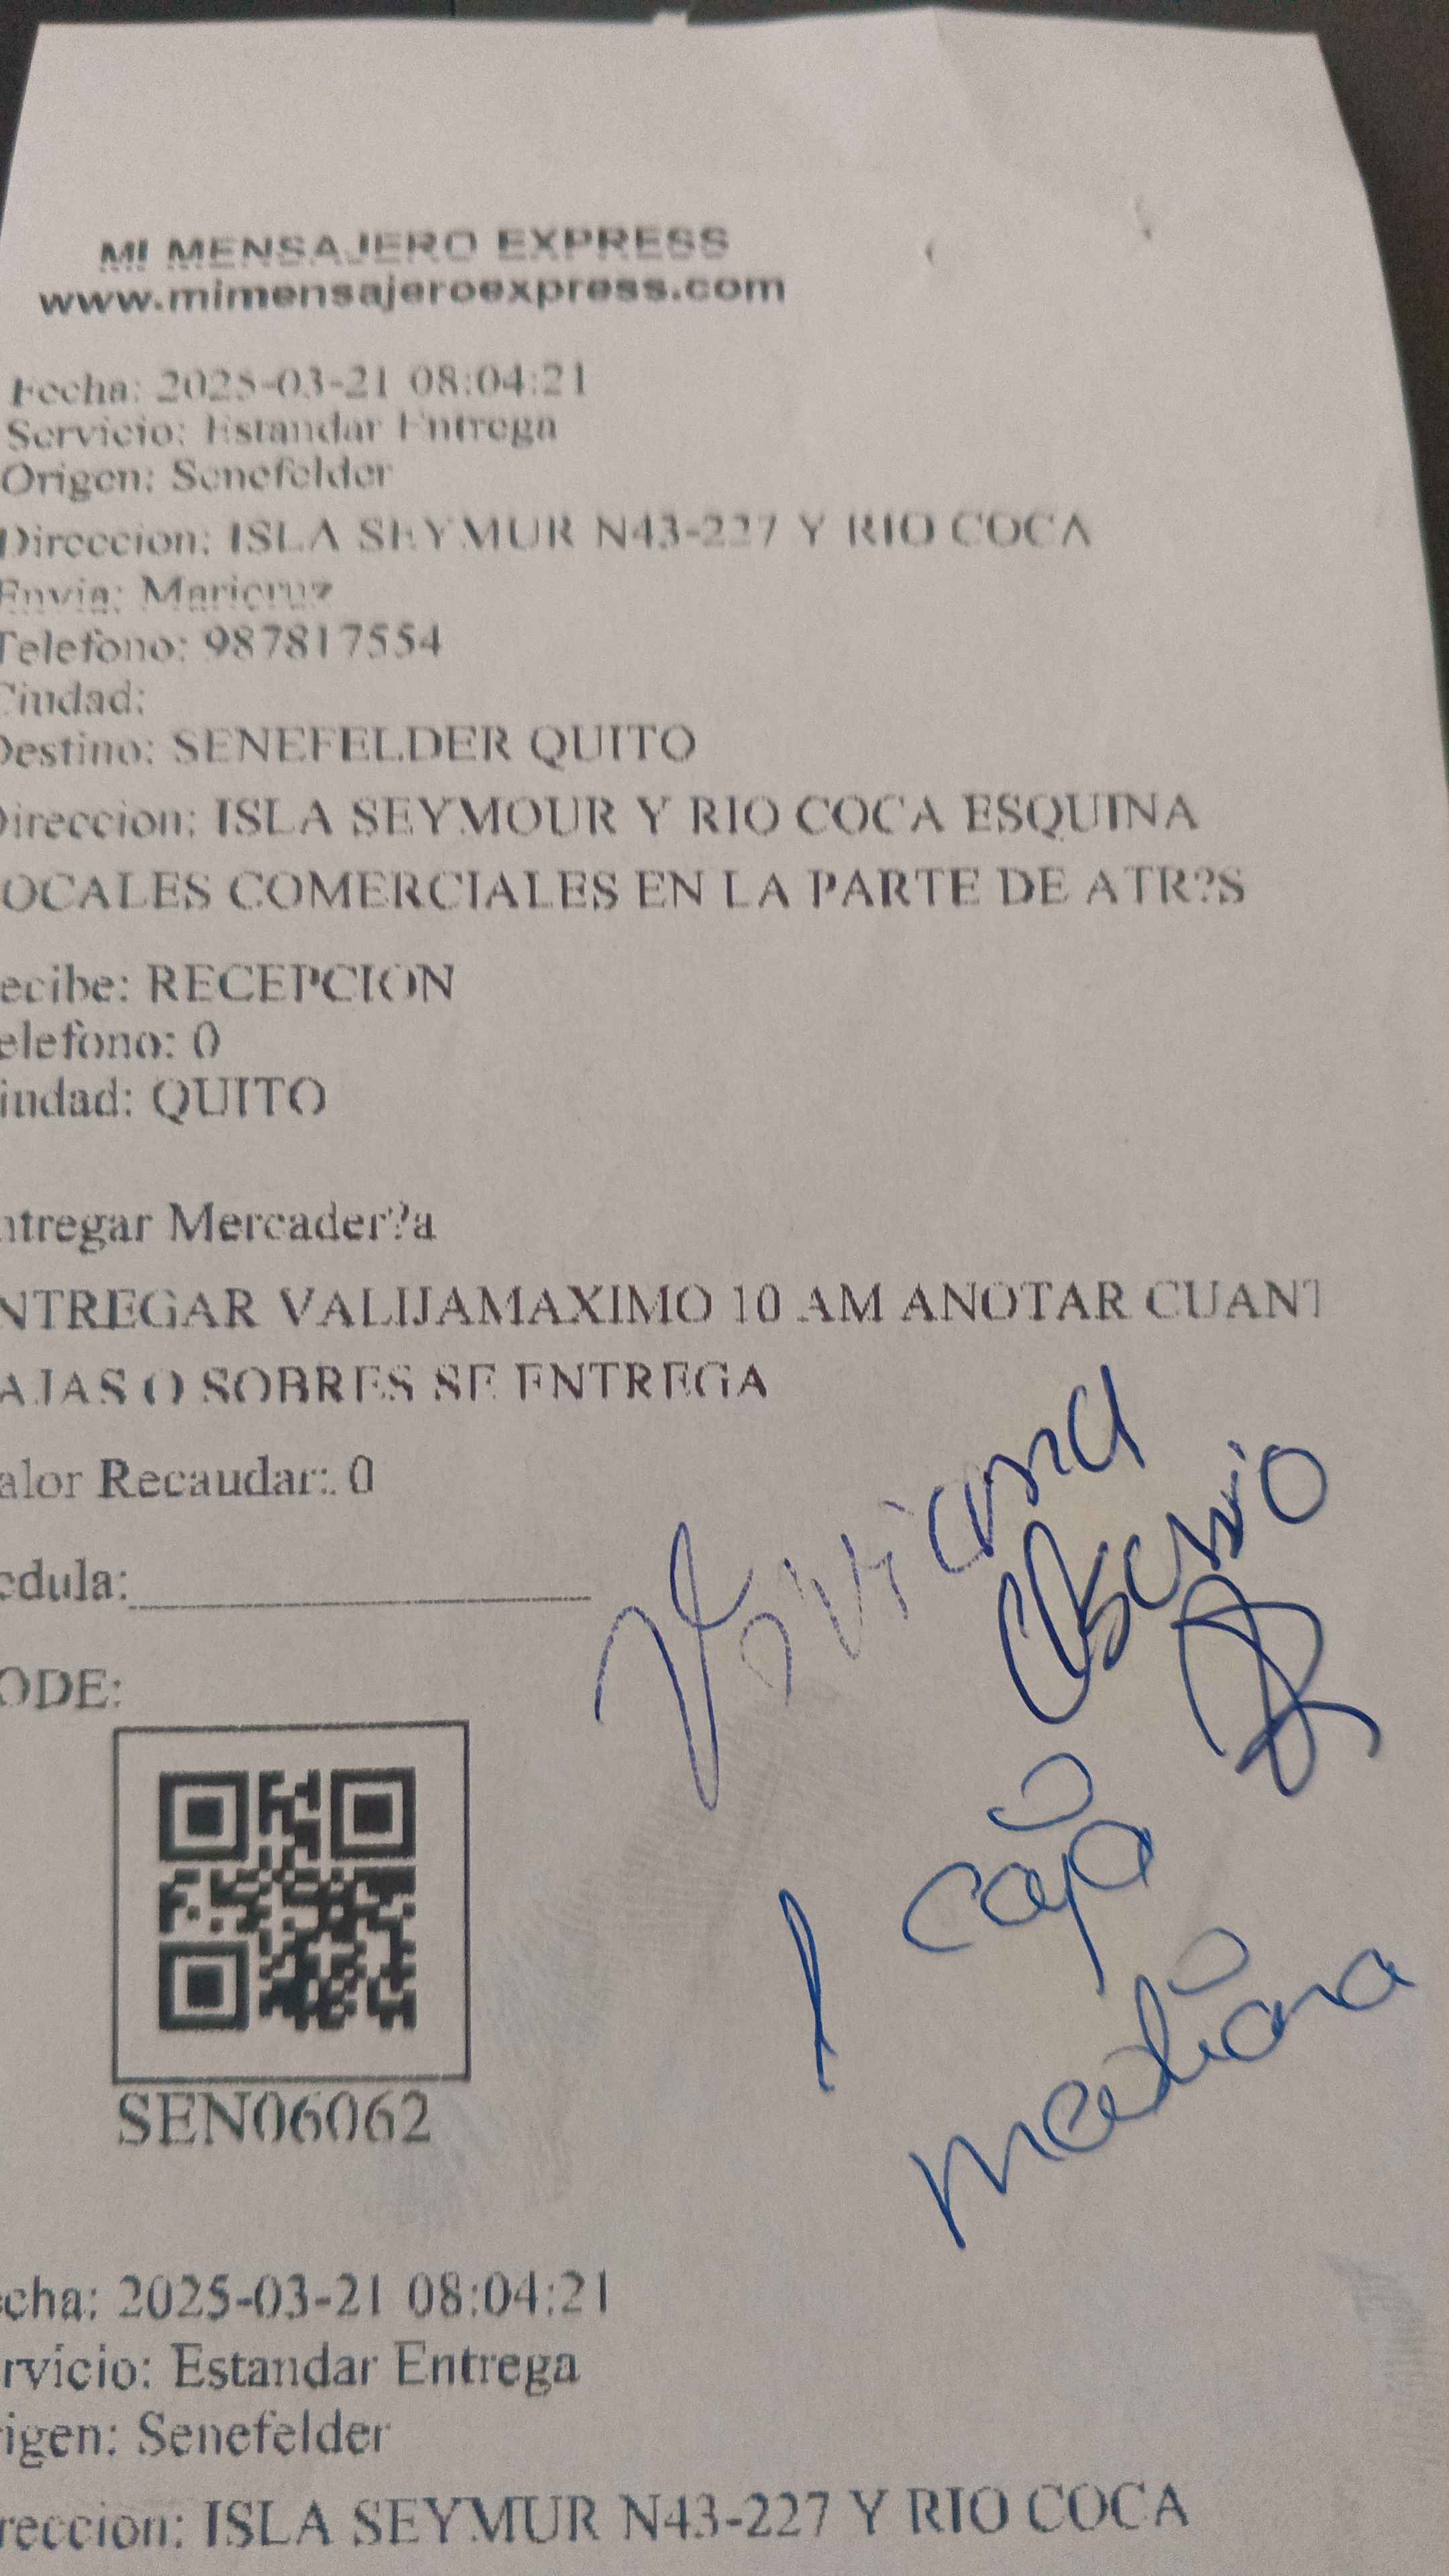 MI MENSAJERO EXPRESS
www.mimensajeroexpress.com
Fecha: 2025-03-21 08:04:21
Servicio: Estandar Entrega
Origen: Senefelder
Direccion: ISLA SEYMUR N43-227 Y RIO COCA
Envia: Maricruz
Telefono: 987817554
Ciudad:
Destino: SENEFELDER QUITO
Direccion: ISLA SEYMOUR Y RIO COCA ESQUINA
OCALES COMERCIALES EN LA PARTE DE ATR?S
ecibe: RECEPCION
elefono: 0
iudad: QUITO
ntregar Mercader?a
NTREGAR VALIJAMAXIMO 10 AM ANOTAR CUANT
AJAS O SOBRES SE ENTREGA
alor Recaudar:. 0
edula:
Viviana
Osorio
ODE:
1 caja
mediana
SEN06062
echa: 2025-03-21 08:04:21
rvicio: Estandar Entrega
rigen: Senefelder
reccion: ISLA SEYMUR N43-227 Y RIO COCA